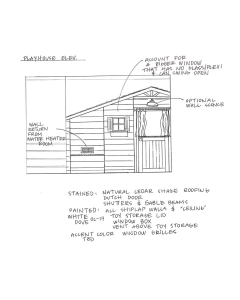 PLAYHOUSE ELEV.
ACCOUNT FOR
A BIGGER WINDOW
THAT HAS NO PLEXIGLASS
& CAN SWING OPEN
OPTIONAL
WALL SCONCE
WALL
RETURN
FROM
WATER HEATER
ROOM
STAINED: NATURAL CEDAR SHAKE ROOFING
DUTCH DOOR
SHUTTERS & GABLE BEAMS
PAINTED: ALL SHIPLAP WALLS & "CEILING"
WHITE TOY STORAGE LID
DOVE OC-17 WINDOW BOX
VENT ABOVE TOY STORAGE
ACCENT COLOR WINDOW GRILLES
TBD